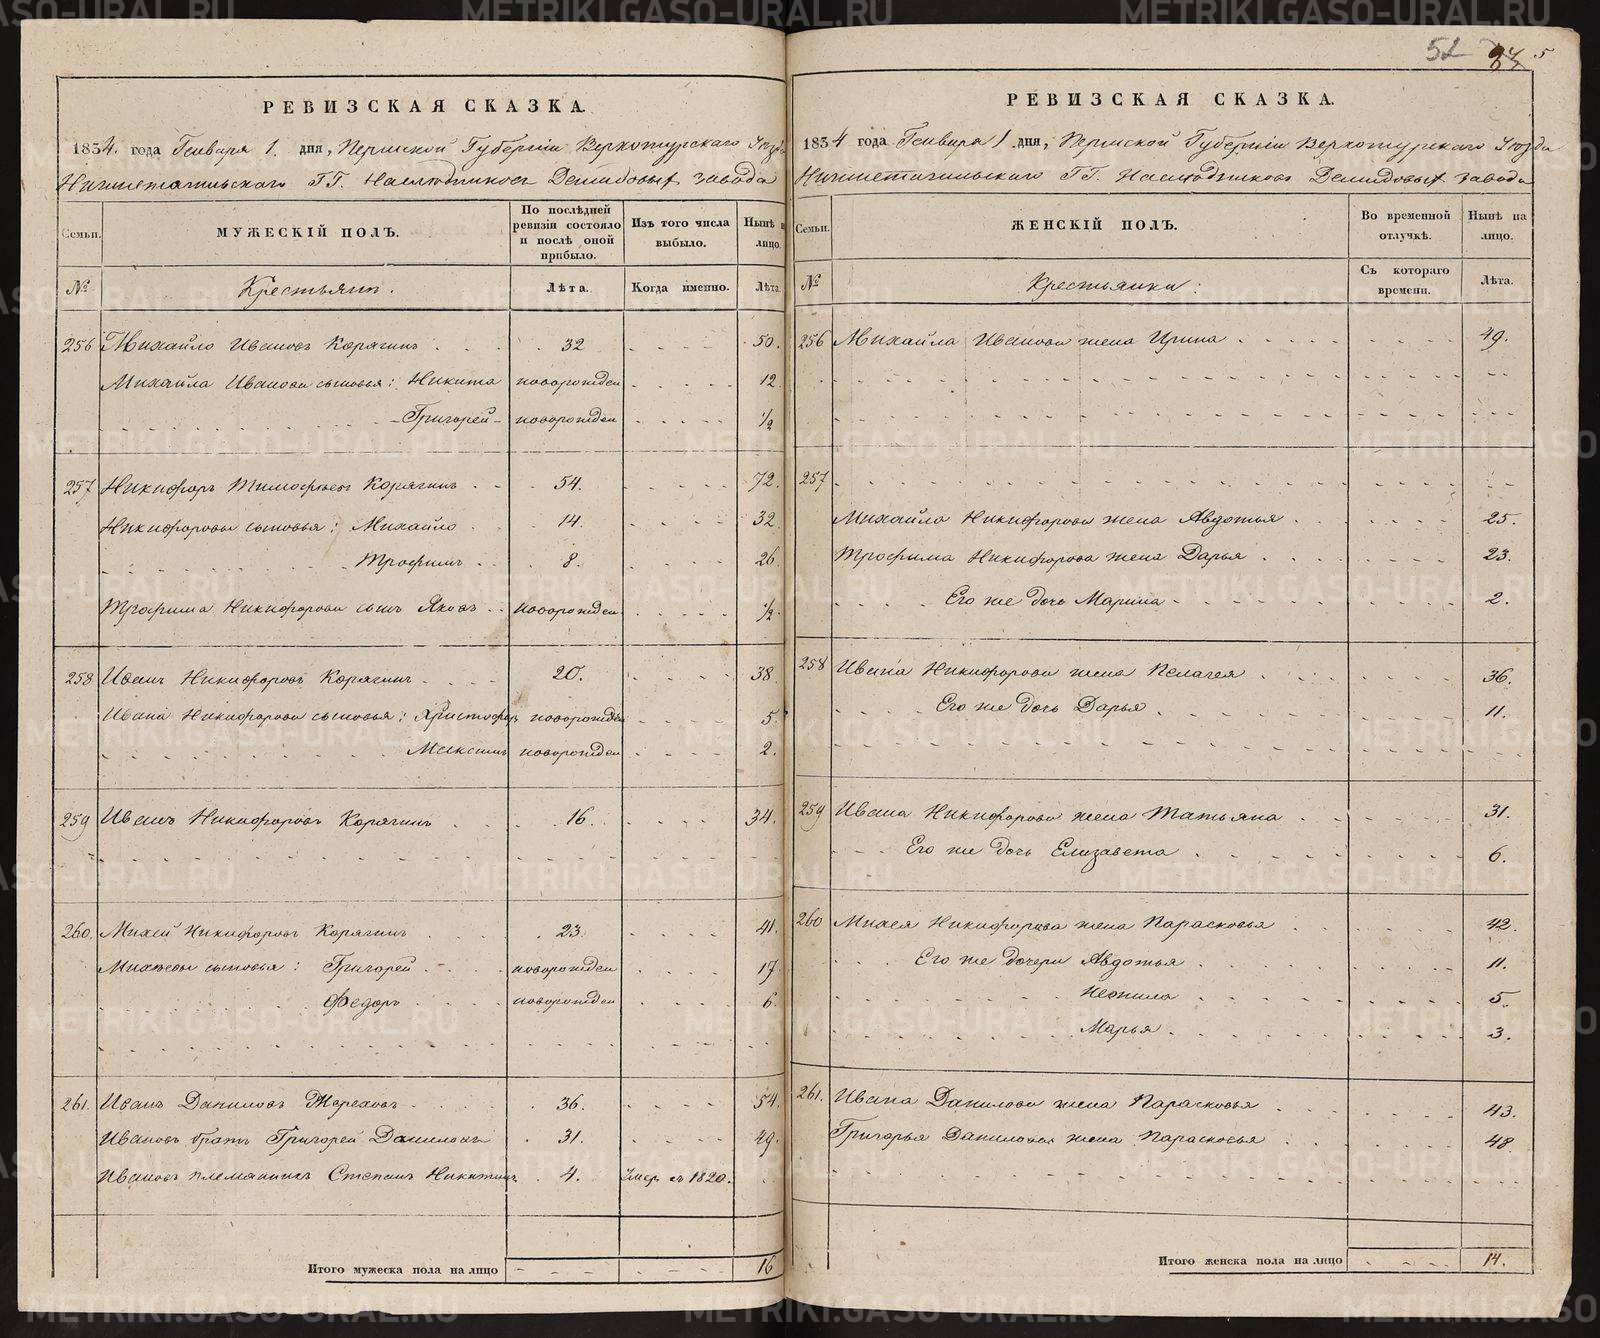 52 87 5
РЕВИЗСКАЯ СКАЗКА.
1834. года Генваря 1. дня, Пермской Губерніи Верхотурскаго Уѣзда
Нижнетагильскаго ГГ. Наслѣдниковъ Демидовыхъ завода
Семьи.
МУЖЕСКІЙ ПОЛЪ.
По послѣдней ревизіи состояло и послѣ оной прибыло.
Изъ того числа выбыло.
Нынѣ на лицо.
№
Крестьянъ.
Лѣта.
Когда именно.
Лѣта.
256 Михайло Ивановъ Корягинъ 32 50.
Михайла Иванова сыновья: Никита новорожден 12
Григорей новорожден 1/2
257 Никифоръ Тимофеевъ Корягинъ 54. 72.
Никифоровы сыновья: Михайло 14. 32
Трофимъ 8. 26
Трофима Никифорова сынъ Яковъ новорожден 1/2.
258 Иванъ Никифоровъ Корягинъ 20. 38.
Ивана Никифорова сыновья: Христофоръ новорожден 5.
Максимъ новорожден 2.
259 Иванъ Никифоровъ Корягинъ 16. 34.
260. Михей Никифоровъ Корягинъ 23. 41.
Михеевы сыновья: Григорей новорожден 17
Федоръ новорожден 6.
261. Иванъ Даниловъ 36. 54.
Ивановъ братъ Григорей Даниловъ 31. 49.
Ивановъ племянникъ Степанъ Никитинъ 4. Умер. въ 1820.
Итого мужеска пола на лицо 16
РЕВИЗСКАЯ СКАЗКА.
1834 года Генваря 1 дня, Пермской Губерніи Верхотурскаго Уѣзда
Нижнетагильскаго ГГ. Наслѣдниковъ Демидовыхъ завода
Семьи.
ЖЕНСКІЙ ПОЛЪ.
Во временной отлучкѣ.
Нынѣ на лицо.
№
Крестьянки:
Съ котораго времени.
Лѣта.
256 Михайла Иванова жена Ирина 49.
257
Михайла Никифорова жена Авдотья 25.
Трофима Никифорова жена Дарья 23.
Его же дочь Марина 2.
258 Ивана Никифорова жена Пелагея 36.
Его же дочь Дарья 11.
259 Ивана Никифорова жена Татьяна 31.
Его же дочь Елизавета 6.
260 Михея Никифорова жена Парасковья 42.
Его же дочери Авдотья 11.
Неонила 5.
Марья 3.
261. Ивана Данилова жена Парасковья 43.
Григорья Данилова жена Парасковья 48
Итого женска пола на лицо 14.
METRIKI.GASO-URAL.RU